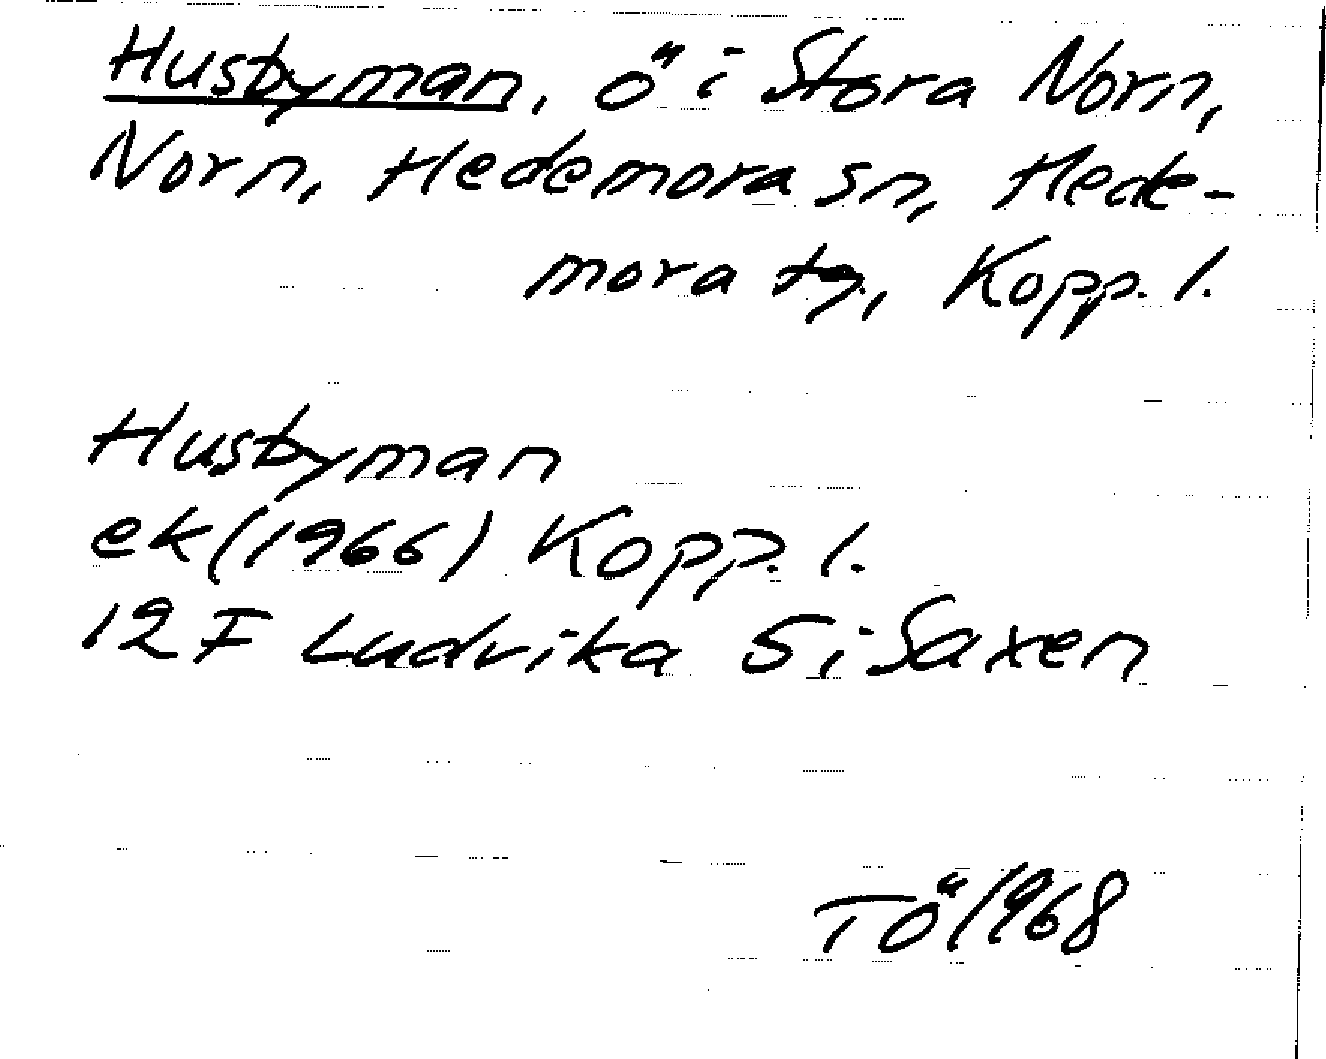 Husbyman, ö i Stora Norn,
Norn, Hedemora sn, Hede-
mora tg, Kopp. l.
Husbyman
ek (1966) Kopp. l.
12 F Ludvika S i Saxen
TÖ 1968